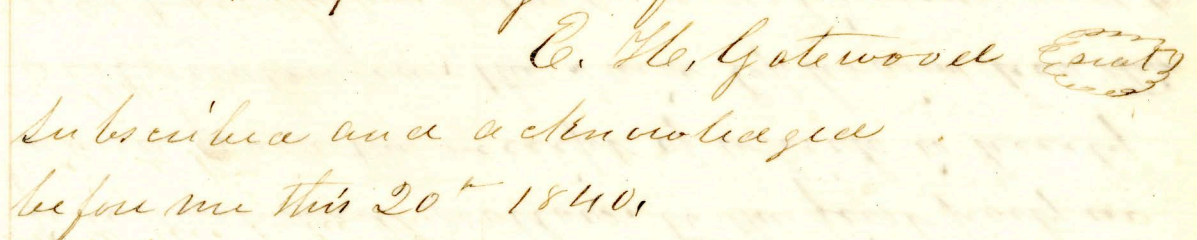 E. H. Gatewood seal
subscribed and acknowledged
before me this 20th 1840.